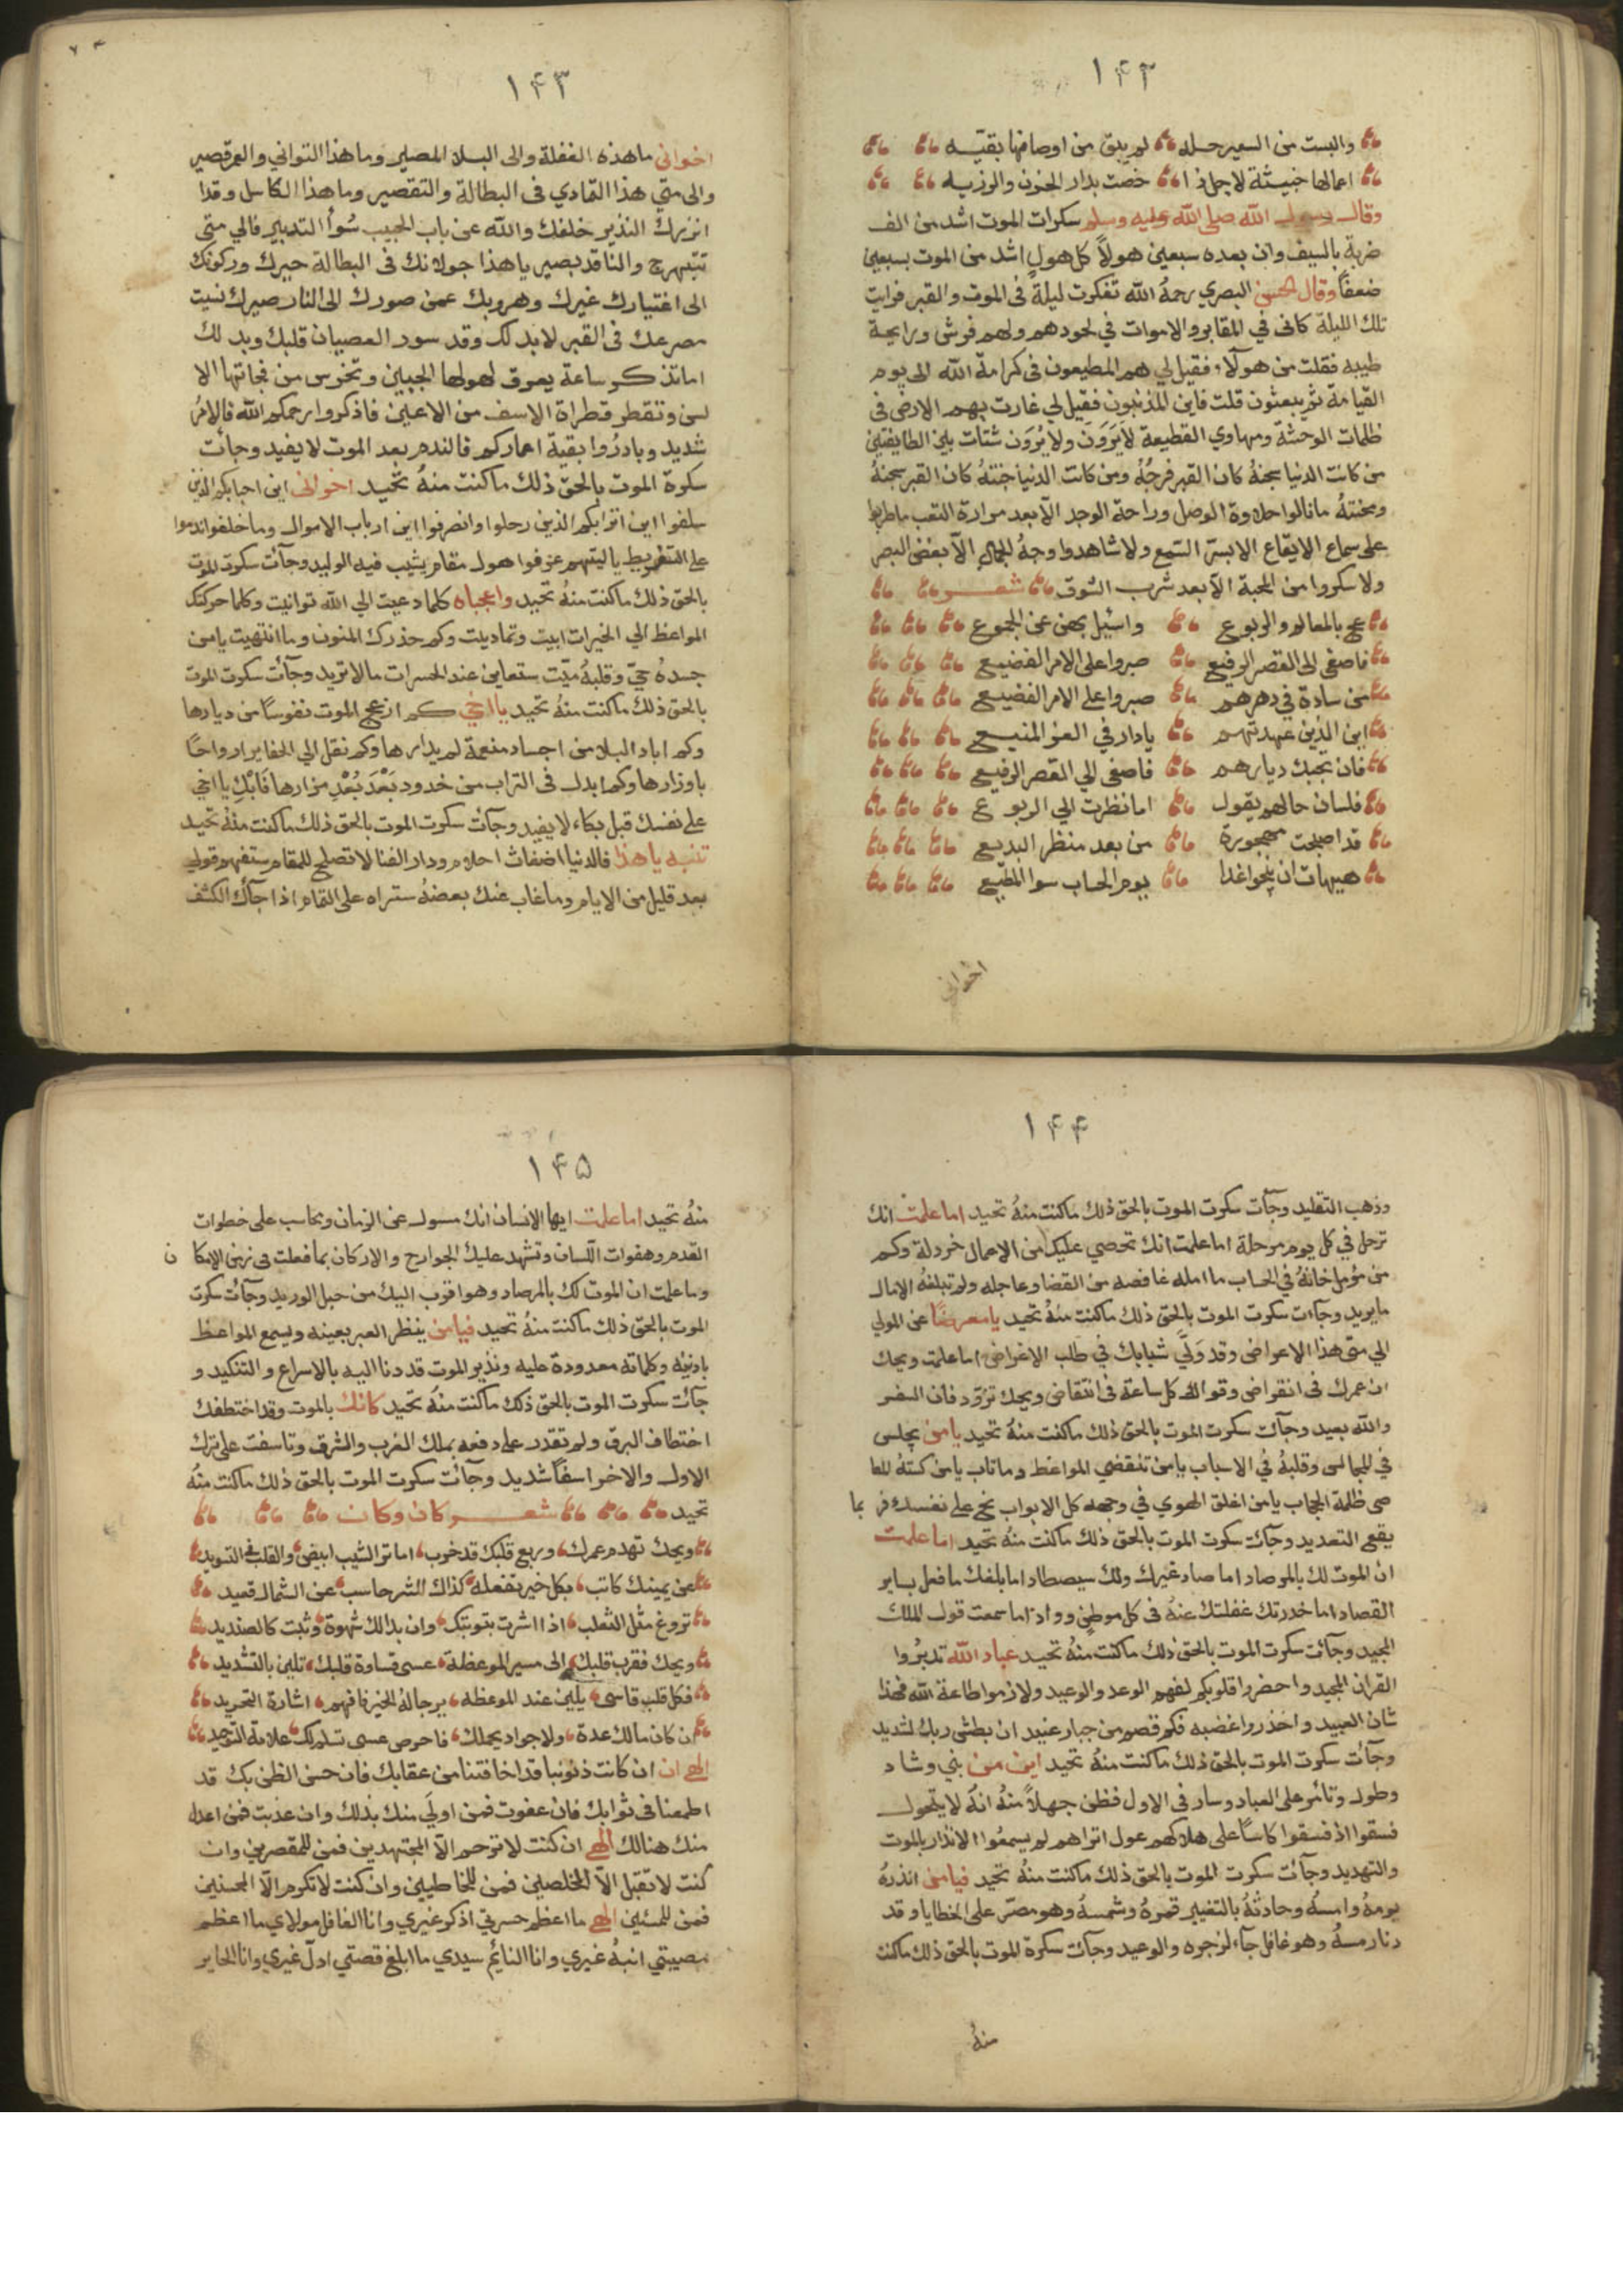 ١٤٢
والبست من السعير حله لم يبق من اوصافها بقيه
اعمالها خبيثة لاجل ذا خصت بدار الحزن والرزيه
وقال رسول الله صلى الله عليه وسلم سكرات الموت اشد من الف
ضربة بالسيف وان بعده سبعين هولاً كل هول اشد من الموت بسبعين
ضعفاً وقال الحسن البصري رحمه الله تفكرت ليلة في الموت والقبر فرايت
تلك الليلة كاني في المقابر والاموات في لحودهم ولهم فرش ورايحة
طيبه فقلت من هولآء فقيل لي هم المطيعون في كرامة الله الى يوم
القيامة ثم يبعثون قلت فاين المذنبون فقيل لي غارت بهم الارض في
ظلمات الوحشة ومهاوي القطيعة لا يَرَوَن ولا يُرَوَن شتات بين الطايفتين
من كانت الدنيا سجنهُ كان القبر فرجُهُ ومن كانت الدنيا جنتهُ كان القبر سجنهُ
ومحنتهُ ما نالوا حلاوة الوصل وراحة الوجد الا بعد مرارة التعب ما طربوا
على سماع الايقاع الا بستر السمع ولا شاهدوا وجهُ الجمال الا بغض البصر
ولا سكروا من المحبة الا بعد شرب الشوق شعر
عج بالمعالم والربوع واسئل بهن عن الجموع
فاصغي الى القصر الرفيع صبروا على الامر الفضيع
من سادة في دهرهم صبروا على الامر الفضيع
اين الذين عهدتهم يا دار في العز المنيع
فان تجبك ديارهم فاصغي الي القصر الرفيع
فلسان حالهم يقول اما نظرت الي الربوع
قد اصبحت مهجورة من بعد منظر البديع
هيهات ان ينجوا غدا يوم الحساب سوا المطيع
اخواني
١٤٣
اخواني ما هذه الغفلة والى البلا المصير وما هذا التواني والعمر قصير
والى متي هذا التمادي في البطالة والتقصير وما هذا الكاسل وقد ا
انزرك النذير خلفك والله عن باب الحبيب سُوأ التدبير فالي متى
تتبهرج والناقد بصير يا هذا جولانك في البطالة حيرك وركونك
الى اغتيارك غيرك وهروبك عمن صورك الى النار صيرك نسيت
مصرعك في القبر لا بد لك وقد سود العصيان قلبك وبد لك
اما تذكر ساعة يعرق لهولها الجبين وتخرس من فجاتها الا
لسن وتقطر قطراة الاسف من الاعين فاذكروا رحمكم الله فالامرُ
شديد وبادرُوا بقية اعماركم فالندم بعد الموت لا يفيد وجائت
سكرة الموت بالحق ذلك ما كنت منهُ تحيد اخواني اين احبابكم الذين
سلفوا اين اترابكم الذين رحلوا وانصرفوا اين ارباب الاموال وما خلفوا ندموا
على التفريط يا ليتهم عرفوا هول مقام يشيب فيه الوليد وجآئت سكرت الموت
بالحق ذلك ما كنت منهُ تحيد واعجباه كلما دعيت الي الله توانيت وكلما حركتك
المواعظ الي الخيرات ابيت وتماديت وكم حذرك المنون وما انتهيت يا من
جسدهُ حيّ وقلبهُ ميّت ستعاين عند الحسرات ما لا تريد وجآئت سكرت الموت
بالحق ذلك ما كنت منهُ تحيد يا اخي كم ازعج الموت نفوسًا من ديارها
وكم اباد البلا من اجساد منعمة لم يدارها وكم نقل الي الحفاير ارواحًا
باوزارها وكم ابدل في التراب من خدود بَعْدَ بُعْدِ مزارها فَابْكِ يا اخي
على نفسك قبل بكاء لا يفيد وجآئت سكرت الموت بالحق ذلك ما كنت منهُ تحيد
تنبه يا هذا فالدنيا اضغاث احلام ودار الفنا لا تصلح للمقام ستفهم قولي
بعد قليل من الايام وما غاب عنك بعضهُ ستراه على التمام اذا جآك الكشف
١٤٤
وذهب التقليد وجآت سكرت الموت بالحق ذلك ما كنت منهُ تحيد اما علمت انك
ترحل في كل يوم مرحلة اما علمت انك تحصي عليك من الاعمال خردلة وكم
من مُؤمل خانهُ في الحساب ما امله غافصه من القضا وعاجله ولم تبلغهُ الامال
ما يريد وجآءت سكرت الموت بالحق ذلك ما كنت منهُ تحيد يا معرضًا عن المولي
الي متي هذا الاعراض وقد وَلّي شبابك في طلب الاغراض اما علمت ويحك
ان عمرك في انقراض وقواك كل ساعة في انتقاض ويحك تزوّد فان السفر
والله بعيد وجآئت سكرت الموت بالحق ذلك ما كنت منهُ تحيد يا من يجلس
في المجالس وقلبهُ في الاسباب يا من تنقضي المواعظ وما تاب يا من كستهُ المعا
صي ظلمة الحجاب يا من اغلق الهوي في وجهه كل الابواب نح على نفسك فر بما
ينفع التعديد وجآئت سكرت الموت بالحق ذلك ما كنت منهُ تحيد اما علمت
ان الموت لك بالمرصاد اما صاد غيرك ولك سيصطاد اما بلغك ما فعل بساير
القصاد اما خدرتك غفلتك عنهُ في كل موطن وواد اما سمعت قول الملك
المجيد وجآئت سكرت الموت بالحق ذلك ما كنت منهُ تحيد عباد الله تدبرُوا
القران المجيد واحضروا قلوبكم لفهم الوعد والوعيد ولازموا طاعة الله فهذا
شان العبيد واحذروا غضبه فكم قصم من جبار عنيد ان بطش ربك لشديد
وجآئت سكرت الموت بالحق ذلك ما كنت منهُ تحيد اين من بني وشاد
وطول وتأمر على العباد وسار في الاول فظن جهلاً منهُ انهُ لا يتحول
فسقوا اذ فسقوا كاسًا على هلاكهم عول اتراهم لم يسمعُوا الانذار بالموت
والتهديد وجآئت سكرت الموت بالحق ذلك ما كنت منهُ تحيد فيا من انذرهُ
يومهُ وامسهُ وحادثهُ بالتغيير قمرهُ وشمسهُ وهو مصرّ على الخطايا وقد
دنا رمسهُ وهو غافل جآء لزجره والوعيد وجآئت سكرة الموت بالحق ذلك ما كنت
منهُ
١٤٥
منهُ تحيد اما علمت ايها الانسان انك مسول عن الزمان ومحاسب على خطوات
القدم وهفوات اللسان وتشهد عليك الجوارح والاركان بما فعلت في زمن الامكا ن
وما علمت ان الموت لك بالمرصاد وهو اقرب اليك من حبل الوريد وجآئت سكرت
الموت بالحق ذلك ما كنت منهُ تحيد فيا من ينظر العبر بعينه ويسمع المواعظ
باذنيه وكلماته معدودة عليه ونذير الموت قد دنا اليه بالاسراع والتنكيد و
جآئت سكرت الموت بالحق ذلك ما كنت منهُ تحيد كانك بالموت وقد اختطفك
اختطاف البرق ولم تقدر على دفعه بملك الغرب والشرق وتاسفت على ترك
الاول والاخر اسفًا شديد وجآئت سكرت الموت بالحق ذلك ما كنت منهُ
تحيد شعر كان وكان
ويحك تهدم عمرك وربع قلبك قد خرب اما تر الشيب ابيض والقلب في التسويد
عن يمينك كاتب بكل خير تفعله كذاك للشر حاسب عن الشمال قعيد
تروغ مثل الثعلب اذا اشرت بتوبتك وان بدا لك شهوة وثبت كالصنديد
ويحك فقرب قلبك الى مسير الموعظة عسى قساوة قلبك تلين بالتشديد
فكل قلب قاسي يلين عند الموعظه يرجا لهُ الخير فافهم اشارة التجريد
ان كان ما لك عدة ولا جواد يحملك فاحرص عسى تسلم لك علامة التوحيد
الهي ان ان كانت ذنوبنا قد اخافتنا من عقابك فان حسن الظن بك قد
اطمعنا في ثوابك فان عفوت فمن اولَي منك بذلك وان عذبت فمن اعدل
منك هنالك الهي ان كنت لا ترحم الّا المجتهدين فمن للمقصرين وان
كنت لا تقبل الّا المخلصين فمن للخاطيين وان كنت لا تكرم الّا المحسنين
فمن للمسئين الهي ما اعظم حسرتي اذكر غيري وانا الغافل مولاي ما اعظم
مصيبتي انبهُ غيري وانا النايم سيدي ما ابلغ قصتي ادلّ غيري وانا الحاير